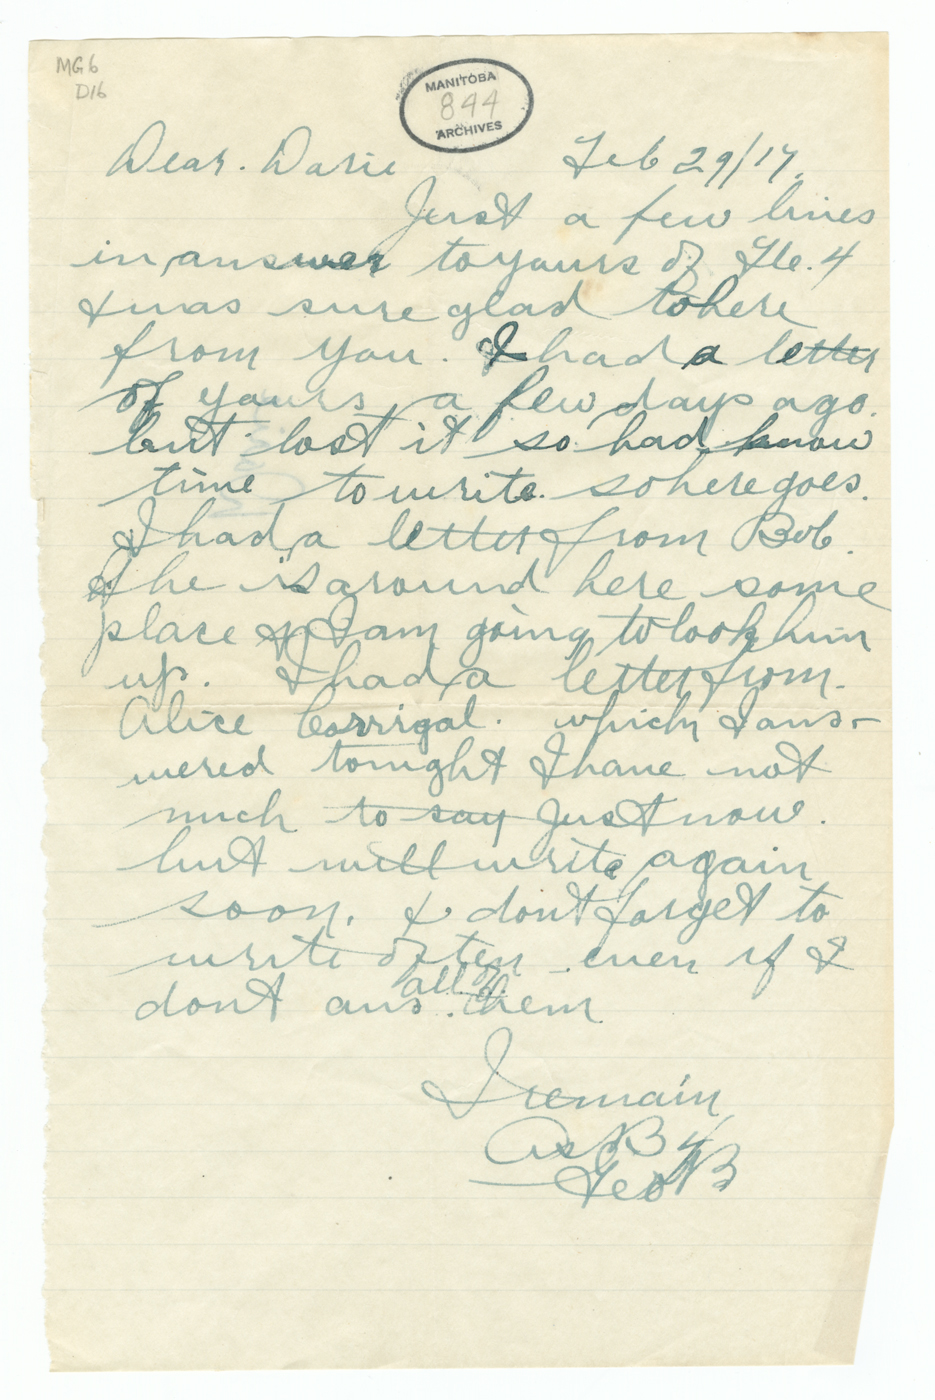 MG6
D16
MANITOBA
844
ARCHIVES
Dear. Darie Feb 29/17.
Just a few lines
in answer to yours of Fe. 4
& was sure glad to here
from you. I had a letter
of yours a few days ago.
but lost it so had know
time to write. so here goes.
I had a letter from Bob.
& he is around here some
place & I am going to look him
up. I had a letter from.
Alice Corrigal. which I ans-
wered tonight I have not
much to say just now.
but will write again
soon. & dont forget to
write often even if I
dont ans. all of them
I remain
As B 4
Geo B